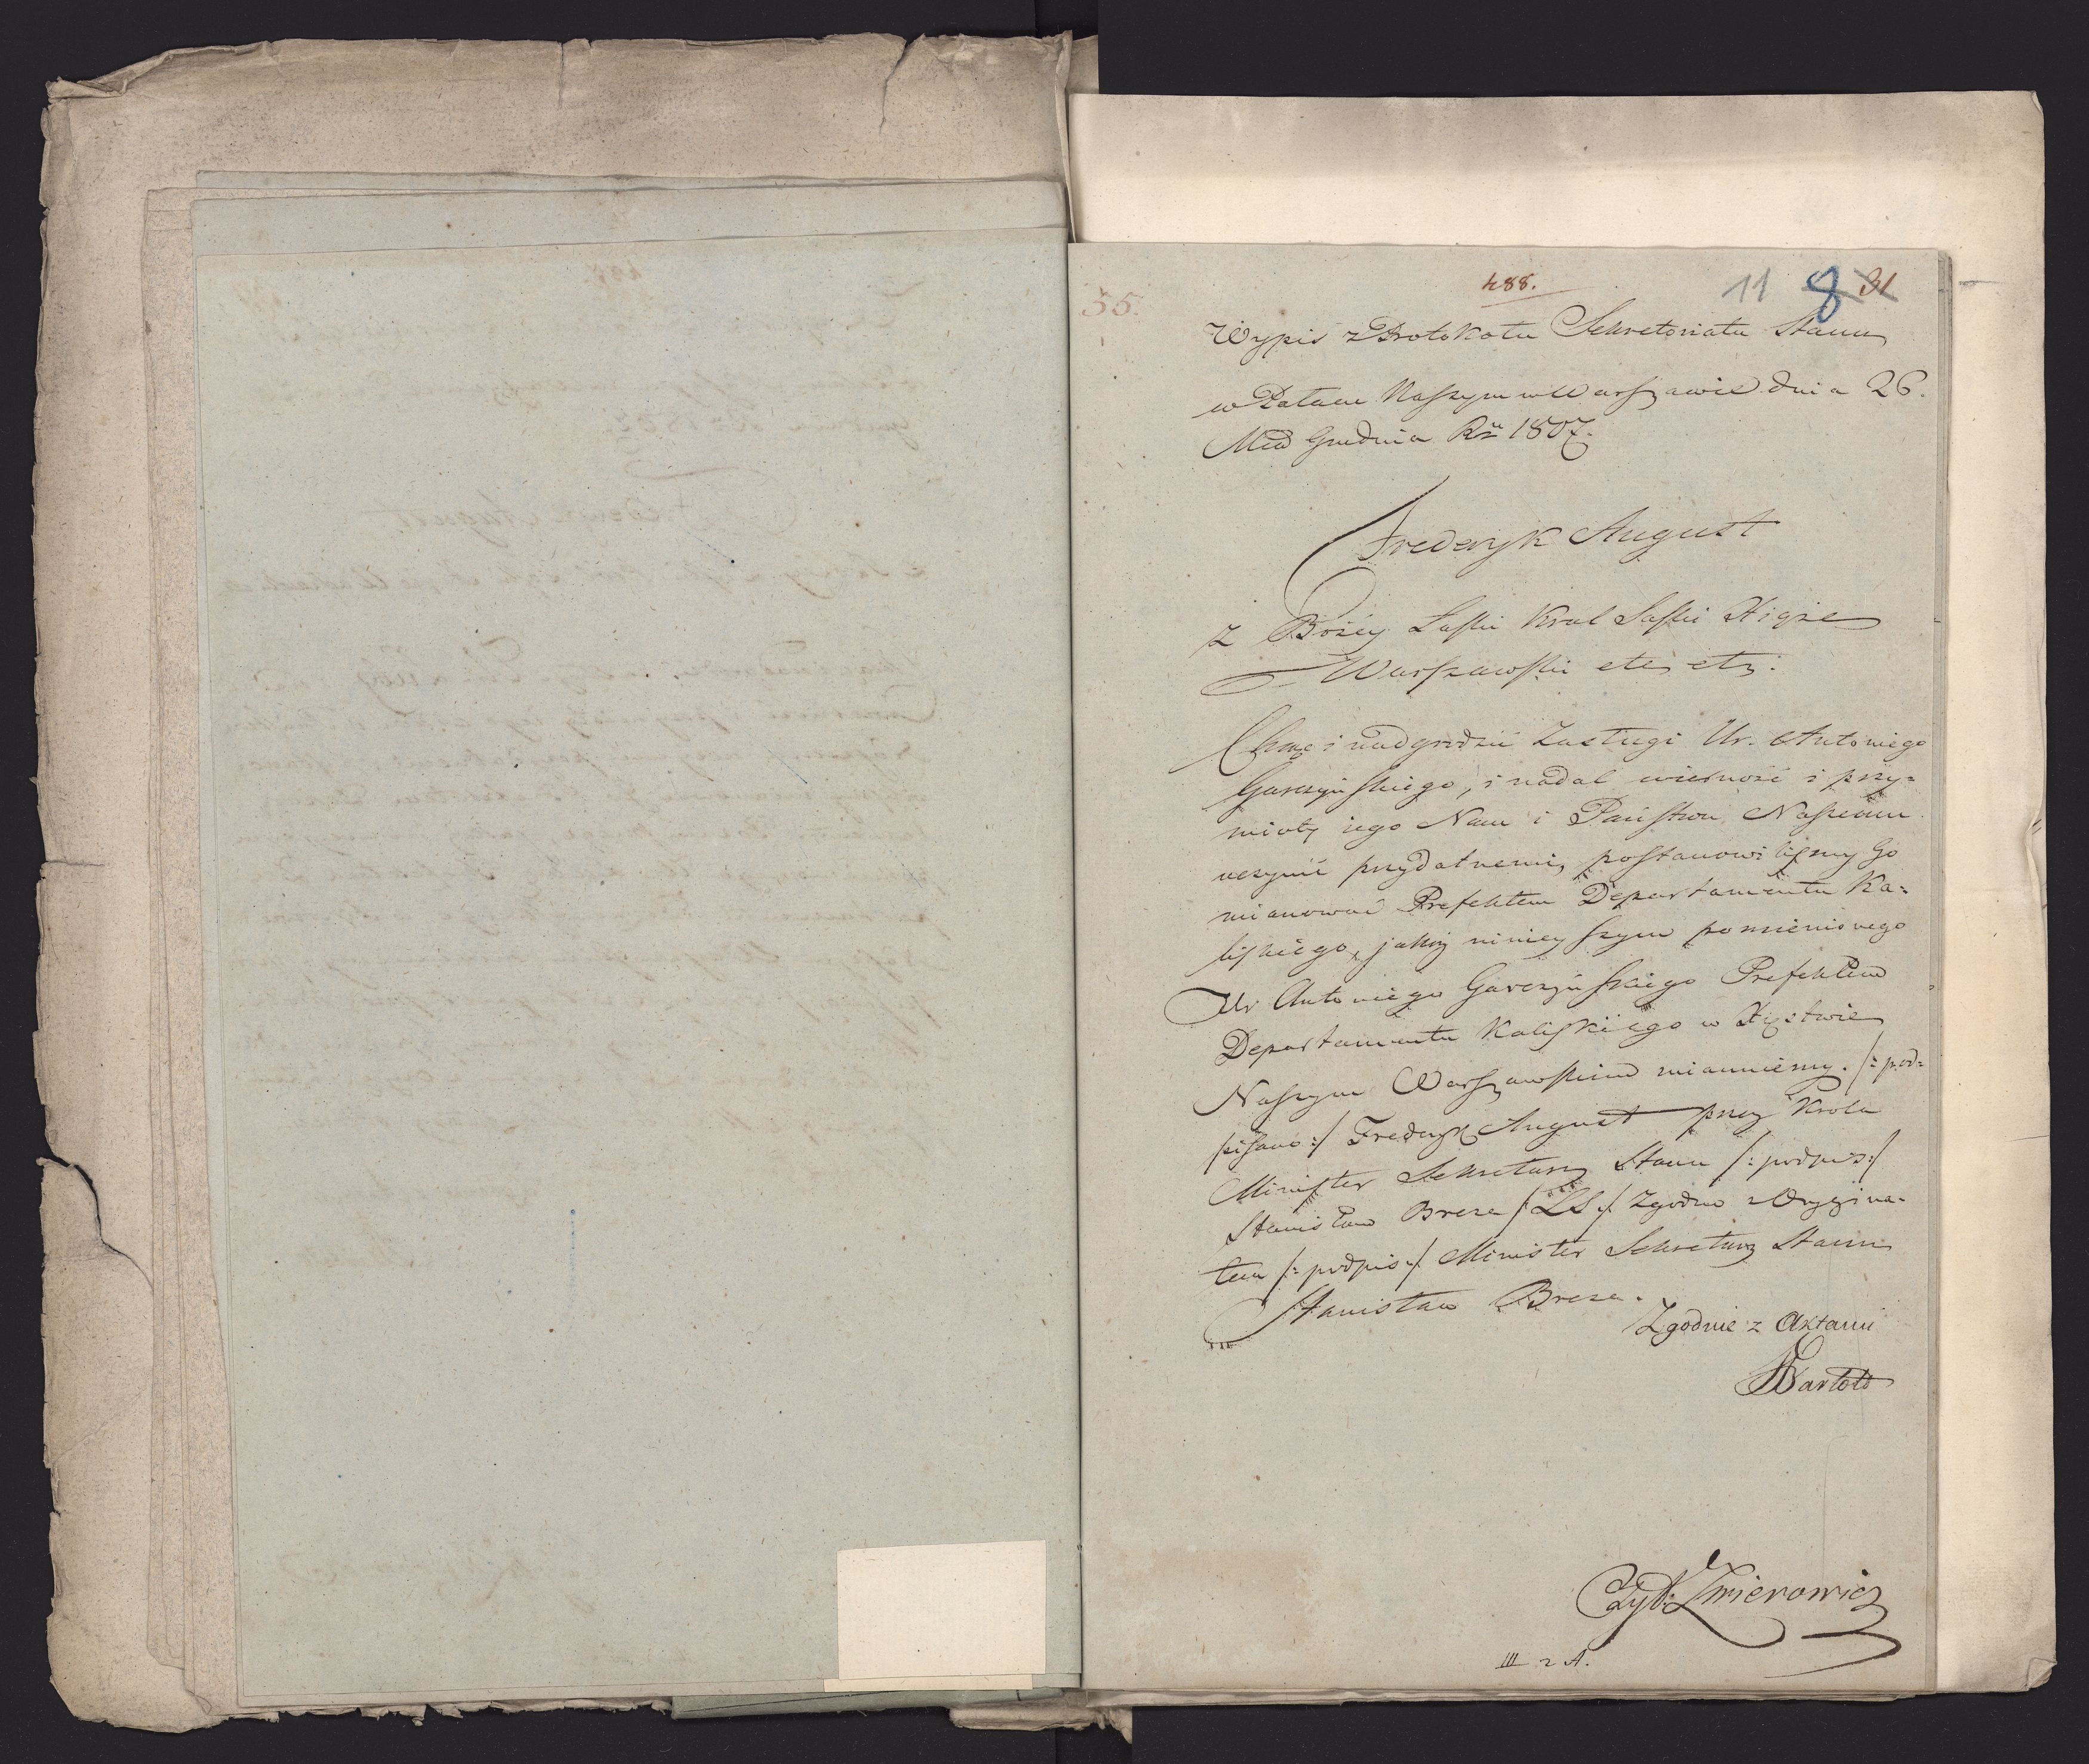 488.
11 8 31
55.
Wypis z Protokołu Sekretoriatu Stanu
w Pałacu Naszym w Warszawie dnia 26.
Mca Grudnia Rku 1807.
Fryderyk August
z Bożey Łaski Krol Saski Xiąże
Warszawski etc etc.
Chcąc i nadgrodzić zasługi Ur. Antoniego
Garczyńskiego, i nadal wierność i przy=
mioty iego Nam i Państwu Naszemu
uczynić przydatnemi, postanowiliśmy Go
mianować Prefektem Departamentu Ka=
liskiego, jakoż ninieyszym pomienionego
Ur Antoniego Garczyńskiego Prefektem
Departamentu Kaliskiego w Xięstwie
Naszym Warszawskim mianuiemy. /: pod=
pisano :/ Fryderyk August przez Krola
Minister Sekretarz Stanu /: podpis :/
Stanisław Breza /: LS :/ Zgodno z Orygina=
łem /: podpis :/ Minister Sekretarz Stanu
Stanisław Breza.
Zgodnie z Aktami
Czyt: Zmierowicz
III z A.